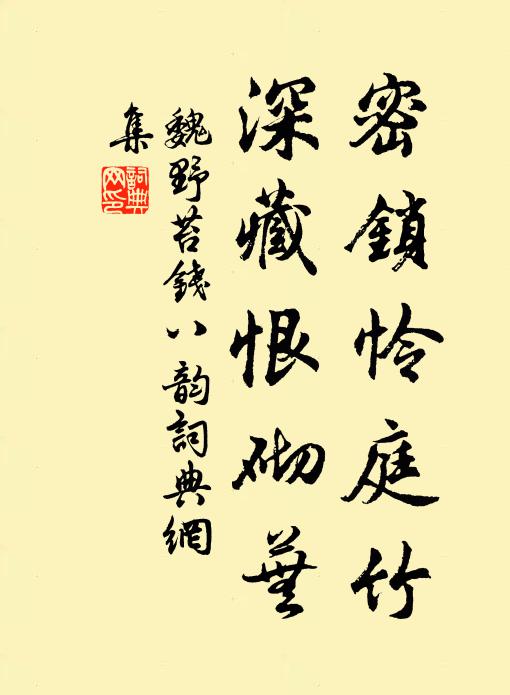 密鎖怜庭竹
深藏恨砌蕪
魏野苔錢八韵詞典網
集
詞典
网印